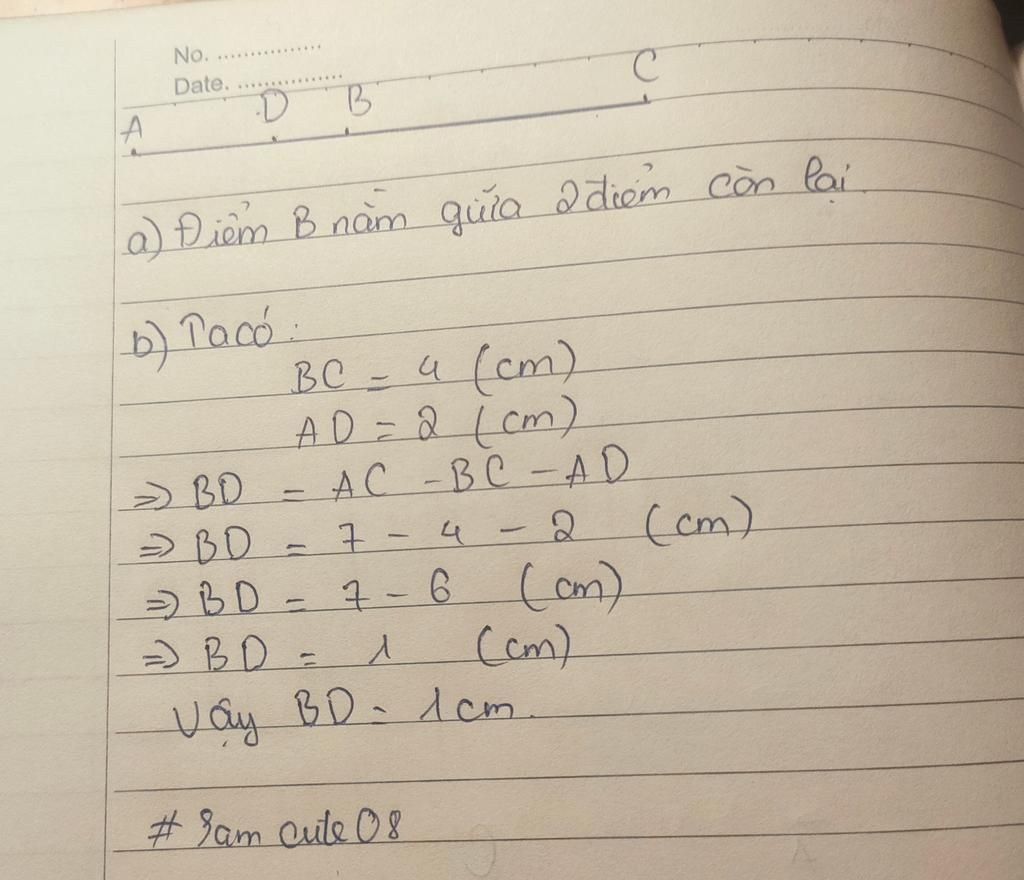 No. ................
Date. ................
A D B C
a) Điểm B nằm gữĩa 2 điểm còn lại.
b) Ta có:
BC = 4 (cm)
AD = 2 (cm)
=> BD = AC - BC - AD
=> BD = 7 - 4 - 2 (cm)
=> BD = 7 - 6 (cm)
=> BD = 1 (cm)
Vậy BD = 1cm.
# cute 08